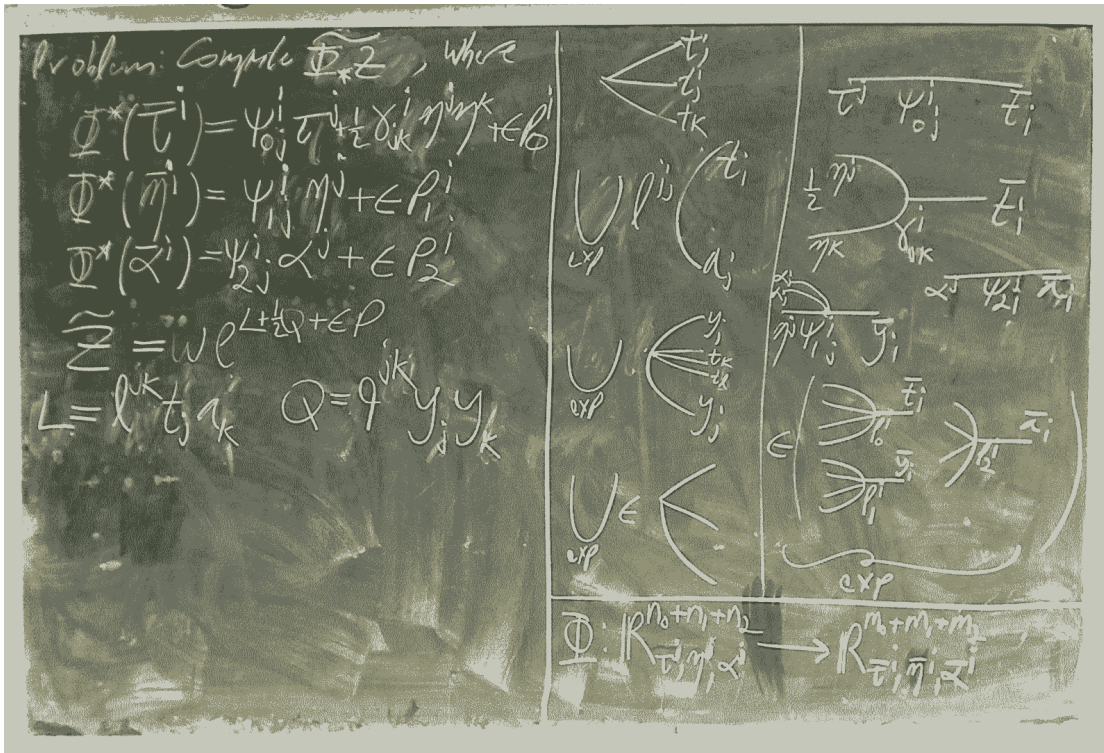 Problem: Compute \widetilde{Φ_* Z}, where
Φ^*(τ̄^i) = ψ_{0j}^i τ^j + ½ γ_{jk}^i η^j η^k + ϵP_0^i
Φ^*(η̄^i) = ψ_{1j}^i η^j + ϵP_1^i
Φ^*(ᾱ^i) = ψ_{2j}^i α^j + ϵP_2^i
Z̃ = ω e^{L+½Q+ϵP}
L = l^{jk} t_j a_k   Q = q^{jk} y_j y_k
t_i
t_j
t_k
∪ l^{ij} t_i
exp a_j
∪ y_i
t_k
t_l
exp y_j
∪ ϵ
exp
τ^j ψ_{0j}^i t̄_i
½ η^j
t̄_i
η^k γ_{jk}^i
α^j ψ_{2j}^i ā_i
α^j
α^j
η^j ψ_{1j}^i ȳ_i
ϵ ( P_0^i t̄_i P_2^i ā_i
P_1^i ȳ_i )
exp
Φ: ℝ^{n_0+n_1+n_2}_{τ^j, η^j, α^j} → ℝ^{m_0+m_1+m_2}_{τ̄^i, η̄^i, ᾱ^i}